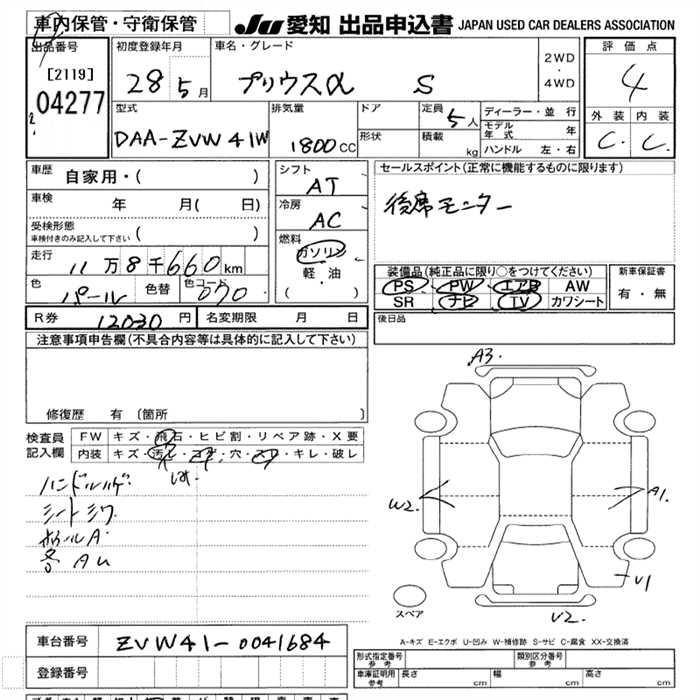 車内保管・守衛保管
JU 愛知 出品申込書 JAPAN USED CAR DEALERS ASSOCIATION
出品番号
[2119]
04277
初度登録年月
28 5月
車名・グレード
プリウスα S
2WD
・
4WD
評価点
4
外装 内装
C. C.
型式
DAA-ZVW41W
排気量
1800 CC
ドア
形状
定員
5人
積載
kg
ディーラー・並行
モデル年式 年
ハンドル 左・右
車歴
自家用・( )
車検
年 月( 日)
受検形態
車検付きのみ記入して下さい ( )
走行
11万8千660km
色
パール
色替
色コード
070
シフト
AT
冷房
AC
燃料
ガソリン
軽・油
( )
セールスポイント(正常に機能するものに限ります)
後席モニター
装備品(純正品に限り○をつけてください)
PS PW エアB AW
SR ナビ TV カワシート
新車保証書
有・無
R券 12030円
名変期限 月 日
後日品
注意事項申告欄(不具合内容等は具体的に記入して下さい)
修復歴 有 〔箇所 〕
検査員
記入欄
FW キズ・飛石・ヒビ割・リペア跡・X要
内装 キズ・汚レ・コゲ・穴・スレ・キレ・破レ
ハンドルハゲ
シートシワ
ホイールA
各AU
A3.
W2
A1.
U1
U2.
スペア
A-キズ E-エクボ U-凹み W-補修跡 S-サビ C-腐食 XX-交換済
車台番号 ZVW41-0041684
登録番号
形式指定番号
参考
類別区分番号
参考
車庫証明用
参考
長さ cm
幅 cm
高さ cm